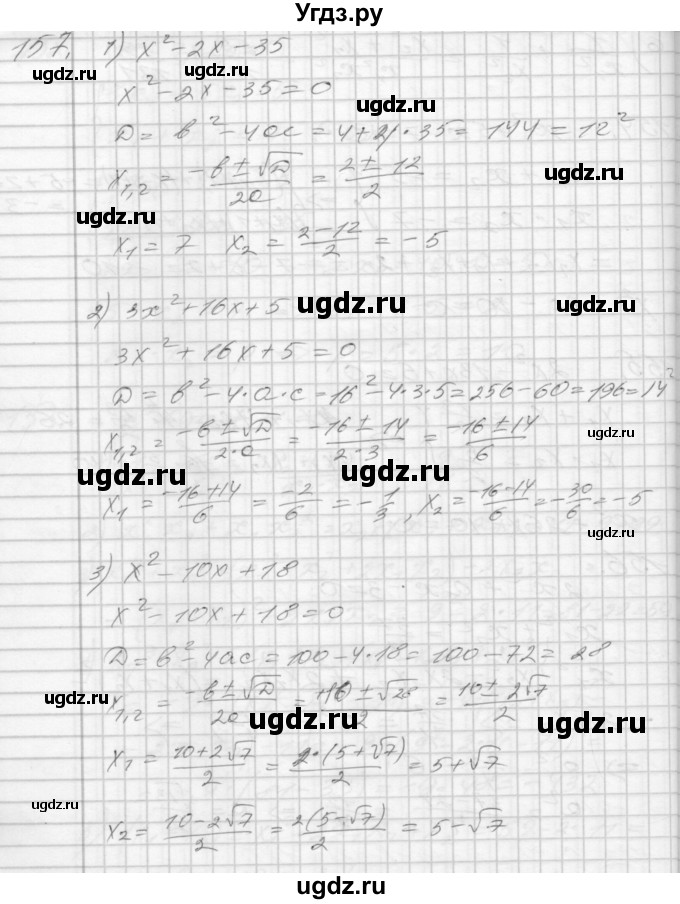 Угдз.ру
157. 1) x² - 2x - 35
ugdz.ru ugdz.ru
x² - 2x - 35 = 0
ugdz.ru
D = b² - 4ac = 4 + 4·35 = 144 = 12²
x₁,₂ = (-b ± √D)/2a = (2 ± 12)/2
ugdz.ru
ugdz.ru
x₁ = 7 x₂ = (2 - 12)/2 = -5
ugdz.ru
2) 3x² + 16x + 5
ugdz.ru
3x² + 16x + 5 = 0
D = b² - 4·a·c = 16² - 4·3·5 = 256 - 60 = 196 = 14²
x₁,₂ = (-b ± √D)/2·a = (-16 ± 14)/2·3 = (-16 ± 14)/6
ugdz.ru
ugdz.ru ugdz.ru
x₁ = (-16 + 14)/6 = -2/6 = -1/3, x₂ = (-16 - 14)/6 = -30/6 = -5
ugdz.ru
3) x² - 10x + 18
ugdz.ru
x² - 10x + 18 = 0
D = b² - 4ac = 100 - 4·18 = 100 - 72 = 28
ugdz.ru
x₁,₂ = (-b ± √D)/2a = (+10 ± √28)/2 = (10 ± 2√7)/2
ugdz.ru ugdz.ru
x₁ = (10 + 2√7)/2 = 2·(5 + √7)/2 = 5 + √7
ugdz.ru
x₂ = (10 - 2√7)/2 = 2(5 - √7)/2 = 5 - √7
ugdz.ru ugdz.ru
ugdz.ru